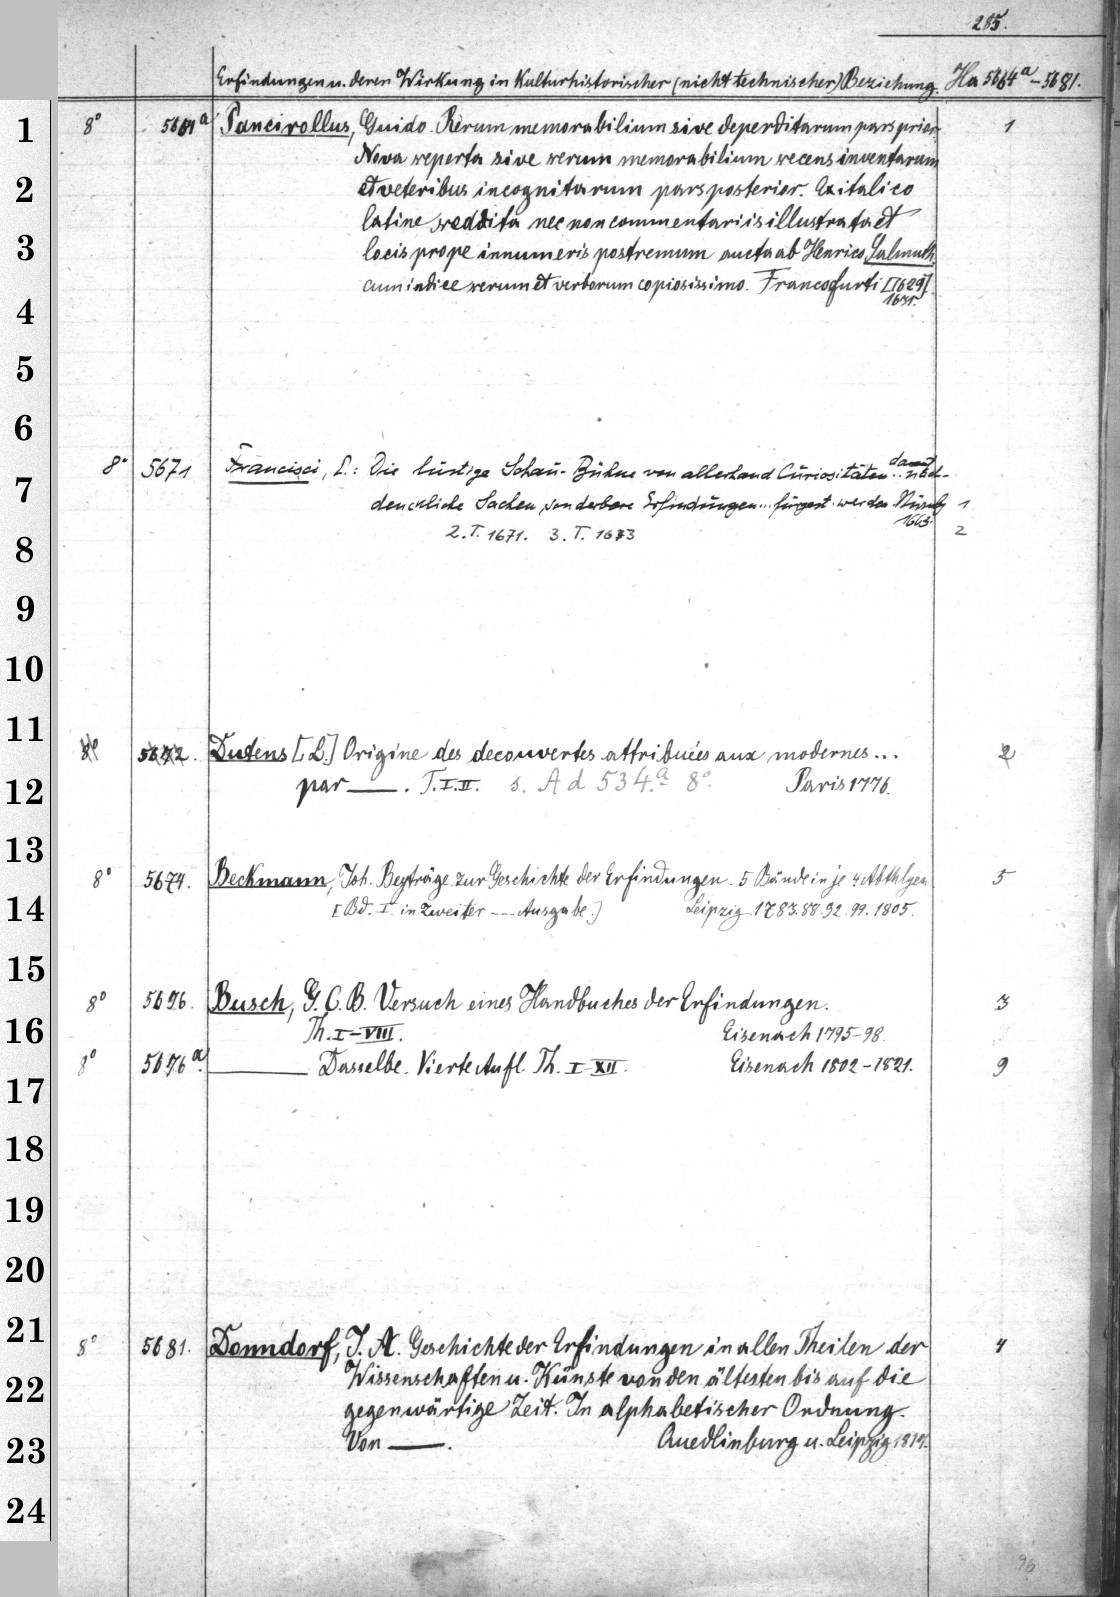 285.
Erfindungen u. deren Wirkung in Kulturhistorischer (nicht technischer) Beziehung. Ha 5664a - 5681.
1 8° 5664a Pancirollus, Guido. Rerum memorabilium sive deperditarum pars prior 1
Nova reperta sive rerum memorabilium recens inventarum
2 et veteribus incognitarum pars posterior. Ex italico
latine reddita nec non commentariis illustrata et
3 locis prope innumeris postremum aucta ab Henrico Salmuth
cum indice rerum et verborum copiosissimo. Francofurti [1629]
4 1631.
5
6
7 8° 5671 Francisci, E.: Die lustige Schau-Bühne von allerhand Curiositäten ...
denckliche Sachen, sonderbare Erfindungen... werden Nürnb 1
1663.
8 2. T. 1671. 3. T. 1673 2
9
10
11 8° 5672. Dutens [L.] Origine des decouvertes attribuées aux modernes... 2
12 par —. T. I. II. s. Ad 534.a 8°. Paris 1776.
13
8° 5674. Beckmann, Joh. Beyträge zur Geschichte der Erfindungen. 5 Bände in je 4 Abthlgen 5
14 [Bd. I. in Zweiter --- Ausgabe.] Leipzig 1783.88.92.99.1805.
15
8° 5676. Busch, G. C. B. Versuch eines Handbuches der Erfindungen. 3
16 Th. I-VIII. Eisenach 1795-98.
8° 5676a. — Dasselbe. Vierte Aufl. Th. I-XII. Eisenach 1802-1821. 9
17
18
19
20
21 8° 5681. Donndorf, J. A. Geschichte der Erfindungen in allen Theilen der 4
22 Wissenschaften u. Künste von den ältesten bis auf die
gegenwärtige Zeit. In alphabetischer Ordnung.
23 Von —. Quedlinburg u. Leipzig 1817.
24
96